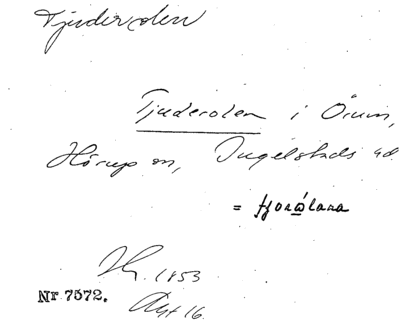 Tjuderolen
Tjuderolen i Örum,
Hörups sn, Ingelstads hd.
= tjorølana
1853
Nr 7572.
16.